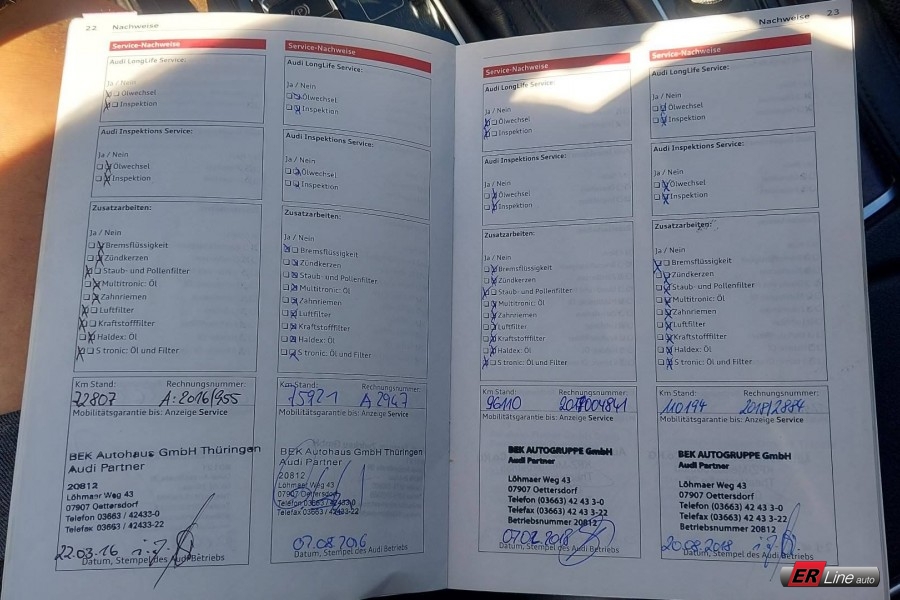 22 Nachweise
Service-Nachweise
Audi LongLife Service:
Ja / Nein
Ölwechsel
Inspektion
Audi Inspektions Service:
Ja / Nein
Ölwechsel
Inspektion
Zusatzarbeiten:
Ja / Nein
Bremsflüssigkeit
Zündkerzen
Staub- und Pollenfilter
Multitronic: Öl
Zahnriemen
Luftfilter
Kraftstofffilter
Haldex: Öl
S tronic: Öl und Filter
Km Stand: Rechnungsnummer:
72807 A:2016/955
Mobilitätsgarantie bis: Anzeige Service
BEK Autohaus GmbH Thüringen
Audi Partner
20812
Löhmaer Weg 43
07907 Oettersdorf
Telefon 03663 / 42433-0
Telefax 03663 / 42433-22
22.03.16
Datum, Stempel des Audi Betriebs
Service-Nachweise
Audi LongLife Service:
Ja / Nein
Ölwechsel
Inspektion
Audi Inspektions Service:
Ja / Nein
Ölwechsel
Inspektion
Zusatzarbeiten:
Ja / Nein
Bremsflüssigkeit
Zündkerzen
Staub- und Pollenfilter
Multitronic: Öl
Zahnriemen
Luftfilter
Kraftstofffilter
Haldex: Öl
S tronic: Öl und Filter
Km Stand: Rechnungsnummer:
75921 A 2947
Mobilitätsgarantie bis: Anzeige Service
BEK Autohaus GmbH Thüringen
Audi Partner
20812
Löhmaer Weg 43
07907 Oettersdorf
Telefon 03663 / 42433-0
Telefax 03663 / 42433-22
07.08.2016
Datum, Stempel des Audi Betriebs
Nachweise 23
Service-Nachweise
Audi LongLife Service:
Ja / Nein
Ölwechsel
Inspektion
Audi Inspektions Service:
Ja / Nein
Ölwechsel
Inspektion
Zusatzarbeiten:
Ja / Nein
Bremsflüssigkeit
Zündkerzen
Staub- und Pollenfilter
Multitronic: Öl
Zahnriemen
Luftfilter
Kraftstofffilter
Haldex: Öl
S tronic: Öl und Filter
Km Stand: Rechnungsnummer:
96110
Mobilitätsgarantie bis: Anzeige Service
BEK AUTOGRUPPE GmbH
Audi Partner
Löhmaer Weg 43
07907 Oettersdorf
Telefon (03663) 42 43 3-0
Telefax (03663) 42 43 3-22
Betriebsnummer 20812
07.02.2018
Datum, Stempel des Audi Betriebs
Service-Nachweise
Audi LongLife Service:
Ja / Nein
Ölwechsel
Inspektion
Audi Inspektions Service:
Ja / Nein
Ölwechsel
Inspektion
Zusatzarbeiten:
Ja / Nein
Bremsflüssigkeit
Zündkerzen
Staub- und Pollenfilter
Multitronic: Öl
Zahnriemen
Luftfilter
Kraftstofffilter
Haldex: Öl
S tronic: Öl und Filter
Km Stand: Rechnungsnummer:
110194 2018/2884
Mobilitätsgarantie bis: Anzeige Service
BEK AUTOGRUPPE GmbH
Audi Partner
Löhmaer Weg 43
07907 Oettersdorf
Telefon (03663) 42 43 3-0
Telefax (03663) 42 43 3-22
Betriebsnummer 20812
20.08.2018
Datum, Stempel des Audi Betriebs
ER Line auto